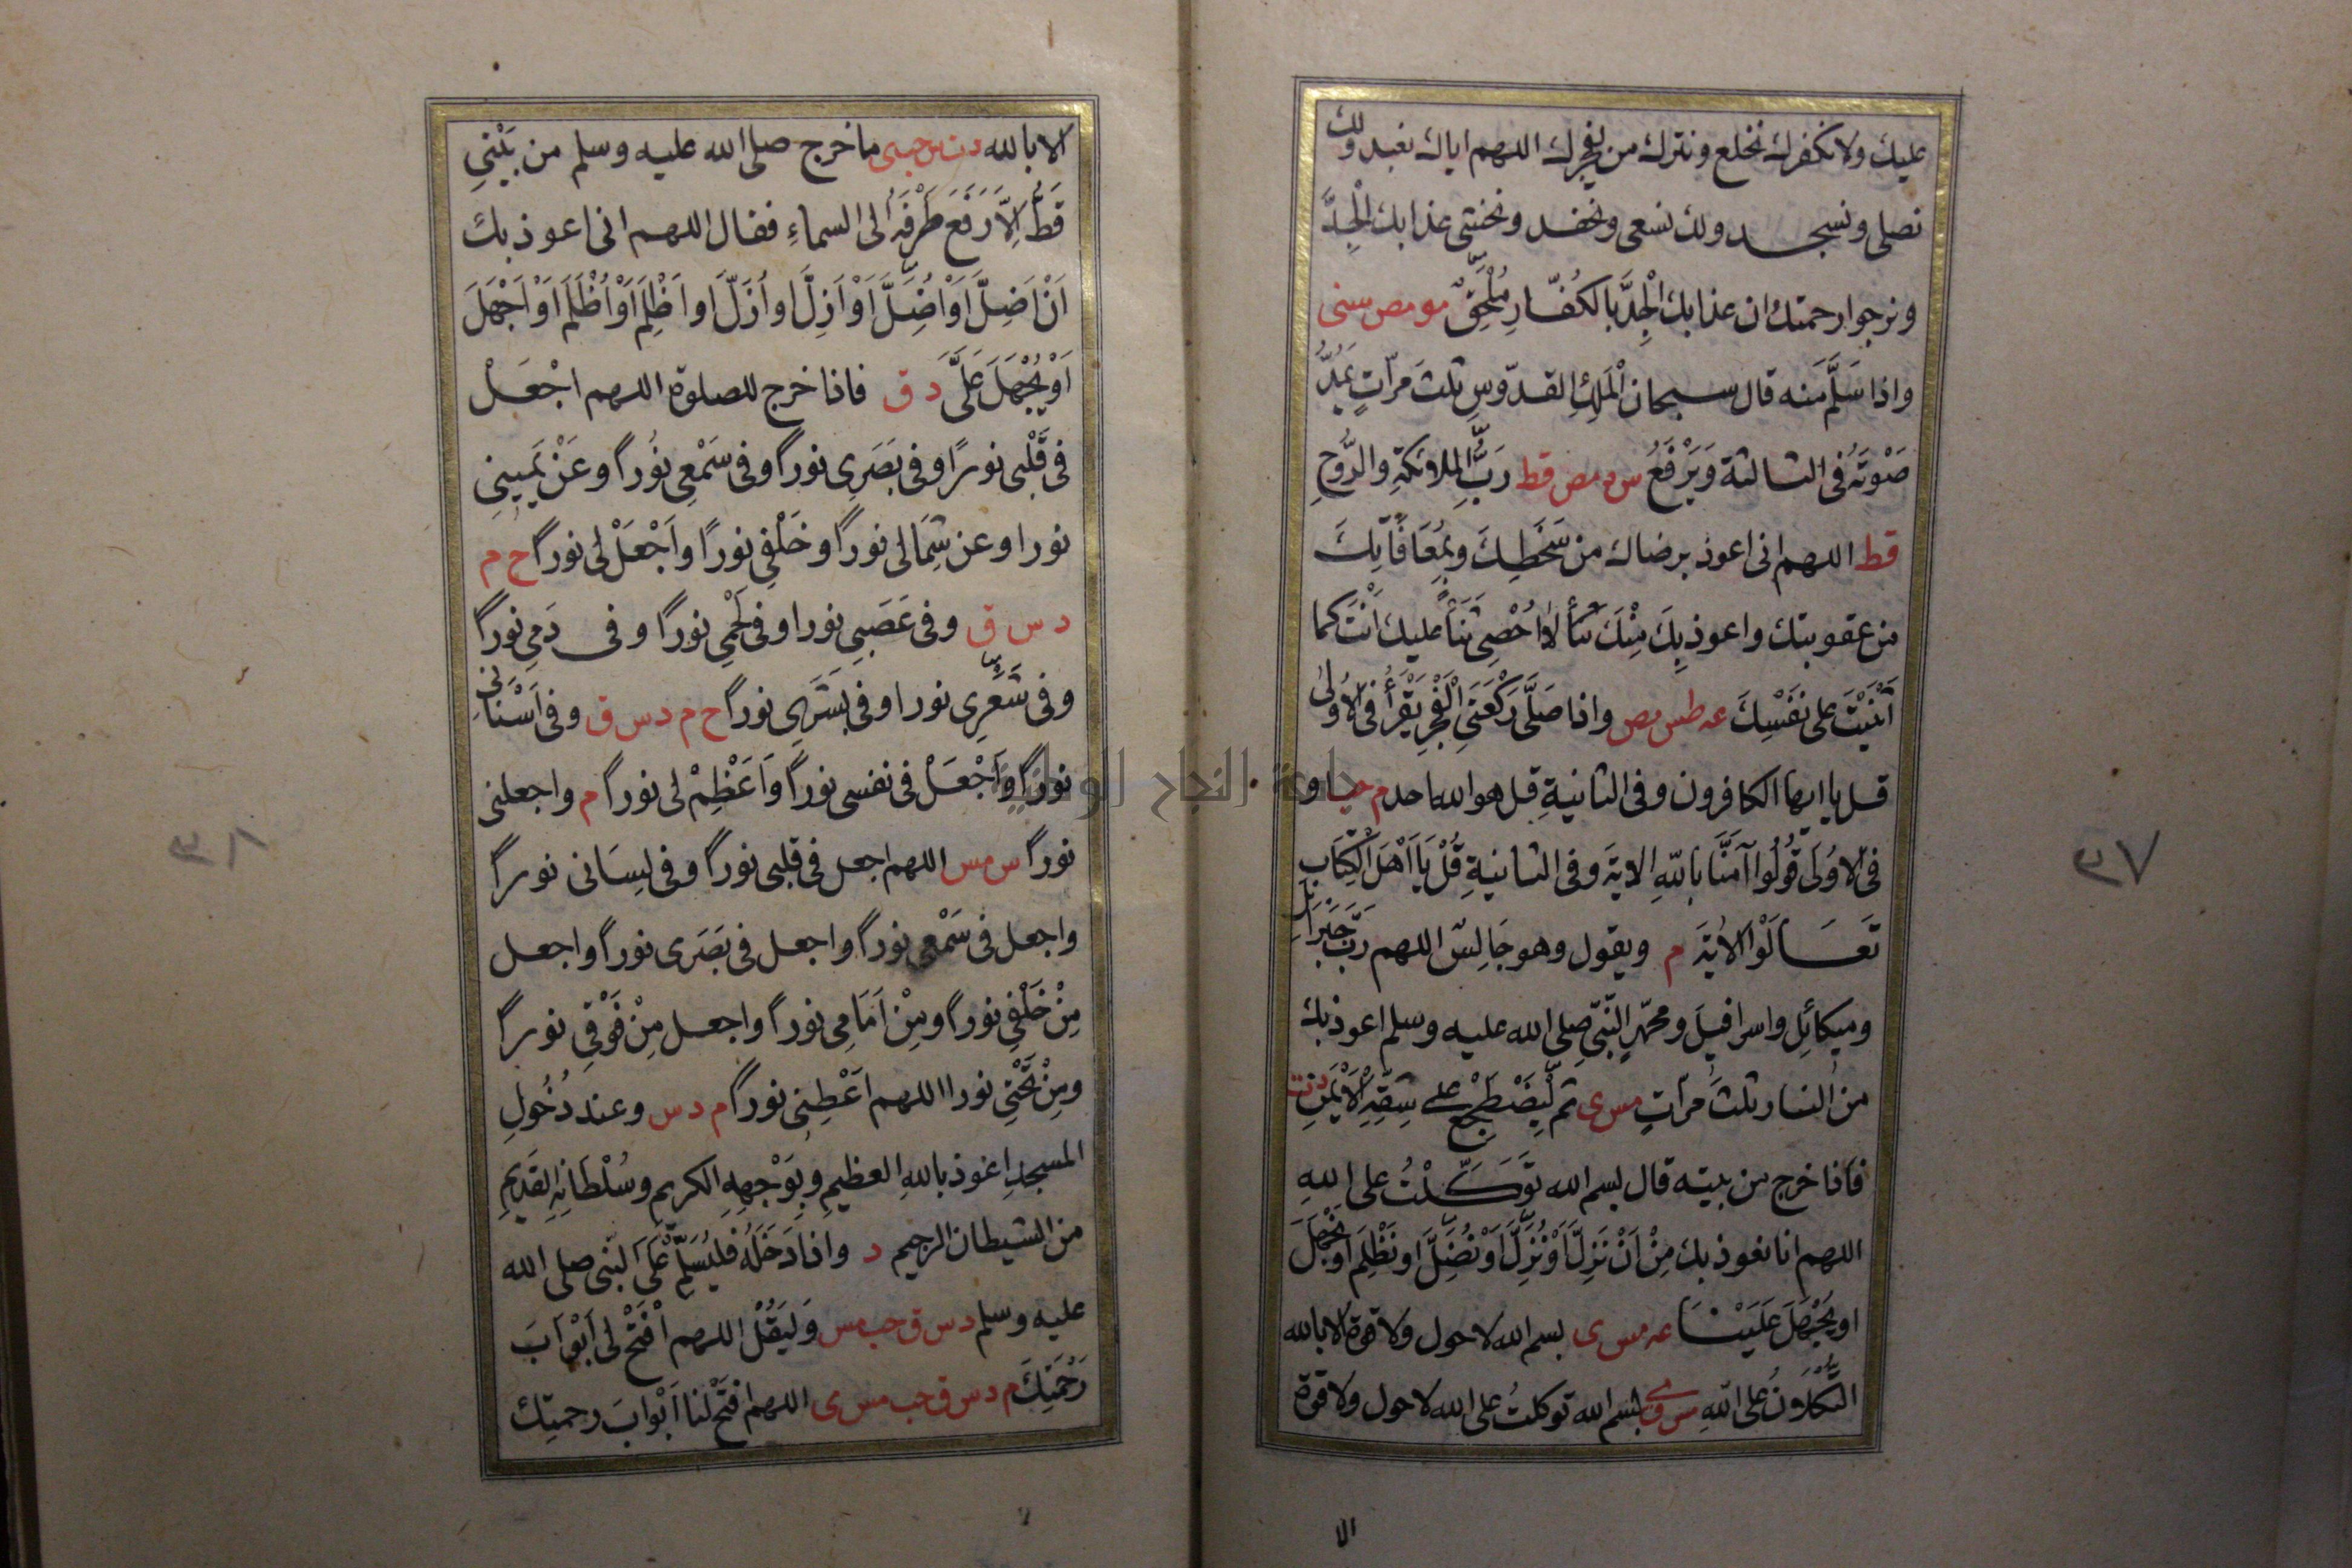 عليك ولا نكفرك نخلع ونترك من يفجرك اللهم اياك نعبد ولك
نصلى ونسجد ولك نسعى ونحفد ونخشى عذابك الْجِدَّ
ونرجوا رحمتك ان عذابك الْجِدَّ بالكُفّارِ مُلْحِقٌ مو مص سنى
واذا سَلَّمَ منه قال سبحان الْمَلِكِ القدّوسِ ثلثَ مرّاتٍ يَمُدُّ
صَوْتَهُ فى الثالثة وَيَرْفَعُ س د مص قط رَبُّ الملائكةِ والرُّوحِ
قط اللهم انى اعوذ برضاك من سَخَطِكَ وبِمُعَافَاتِكَ
من عقوبتك واعوذ بِكَ مِنْكَ لا اُحْصِى ثَنَاً عليك اَنْتَ كما
اَثْنَيْتَ على نَفْسِكَ عه طس مص واذا صَلَّى رَكْعَتَىِ الْفَجْرِ يَقْرَأُ فى الاُولىٰ
قل يا ايها الكافرون وفى الثانيةِ قل هو الله احد م حب او
فى الاُولَى قُولُوا آمَنَّا بِاللّٰهِ الاية وفى الثانيةِ قُلْ يَا اَهْلَ الْكِتَابِ
تَعَالَوْا الاٰيَةَ م ويقول وهو جَالِسٌ اللهم رَبَّ جَبْرَائِلَ
وميكائِل واسرافيلَ ومحمّدٍ النّبىّ صلى الله عليه وسلم اعوذ بك
من النار ثلثَ مرّاتٍ مس ى ثم لْيَضْطَجِعْ على شِقِّهِ الْاَيْمَنِ د ت
فاذا خرج من بيته قال بسم الله تَوَكَّلْتُ على اللهِ
اللهم انا نعوذ بك مِنْ اَنْ نَزِلَّ اَوْ نُزِلَّ اَوْ نُضِلَّ او نَظْلِمَ او نَجْهَلَ
او يُجْهَلَ عَلَيْنَا عه مس ى بسم الله لا حول ولا قوة الا بالله
التُّكْلَانُ على اللّٰهِ مس ق ى بسم الله توكلتُ على الله لا حول ولا قوة
الا
٣٧
الا بالله د ت س حب ى ما خرج صلى الله عليه وسلم من بَيْتِي
قَطُّ اِلاَّ رَفَعَ طَرْفَهُ الى السماءِ فقال اللهم انى اعوذ بك
اَنْ اَضِلَّ اَوْ اُضِلَّ اَوْ اَزِلَّ او اُزَلَّ او اَظْلِمَ اَوْ اُظْلَمَ اَوْ اَجْهَلَ
اَوْ يُجْهَلَ عَلَىَّ د ق فاذا خرج للصلوة اللهم اجْعَلْ
فى قَلْبِى نورًا وفى بَصَرِى نوراً وفى سَمْعِى نُوراً وعَنْ يَمِينِى
نورا وعن شِمَالى نوراً وخَلْفِى نورًا واَجْعَلْ لى نوراً خ م
د س ق وفى عَصَبِى نورا وفى لَحْمِى نوراً وفى دَمِى نوراً
وفى شَعْرِى نورا وفى بَشَرِى نوراً خ م د س ق وفى لِسَانى
نوراً وَاجْعَلْ فى نفسى نوراً وَاَعْظِمْ لى نوراً م واجعلنى
نوراً س مس اللهم اجعل فى قلبى نوراً وفى لِسَانى نوراً
واجعل فى سَمْعِى نوراً واجعل فى بَصَرى نوراً واجعل
مِنْ خَلْفِى نوراً ومِنْ اَمَامِى نوراً واجعل مِنْ فَوْقِى نوراً
ومِنْ تَحْتِى نورا اللهم اَعْطِنِى نوراً م د س وعند دُخُولِ
المسجدِ اعوذ باللهِ العظيمِ وبِوَجْهِهِ الكريمِ وسُلْطَانِهِ القَدِيمِ
من الشيطان الرجيم د واذا دَخَلَهُ فليُسَلِّمْ عَلَى النّبى صلى الله
عليه وسلم د س ق حب مس وَلْيَقُلْ اللهم افْتَحْ لى اَبْوَابَ
رَحْمَتِكَ م د س ق حب مس ى اللهم افتَحْ لنا اَبْوَابَ رحمتِك
٣٨
جامعة النجاح الوطنية